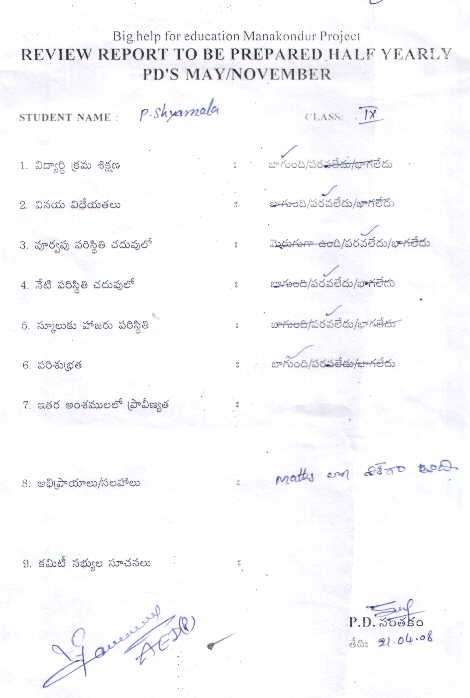 Big help for education Manakondur Project
REVIEW REPORT TO BE PREPARED HALF YEARLY
PD'S MAY/NOVEMBER
STUDENT NAME : P. Shyamala CLASS: IX
1. విద్యార్థి క్రమ శిక్షణ : బాగుంది/పరవలేదు/బాగలేదు
2. వినయ విధేయతలు : బాగుంది/పరవలేదు/బాగలేదు
3. పూర్వపు పరిస్థితి చదువులో : మెరుగుగా ఉంది/పరవలేదు/బాగలేదు
4. నేటి పరిస్థితి చదువులో : బాగుంది/పరవలేదు/బాగలేదు
5. స్కూలుకు హాజరు పరిస్థితి : బాగుంది/పరవలేదు/బాగలేదు
6. పరిశుభ్రత : బాగుంది/పరవలేదు/బాగలేదు
7. ఇతర అంశములలో ప్రావీణ్యత :
8. అభిప్రాయాలు/సలహాలు : maths
9. కమిటీ సభ్యుల సూచనలు :
P.D. సంతకం
తేది: 21.04.08